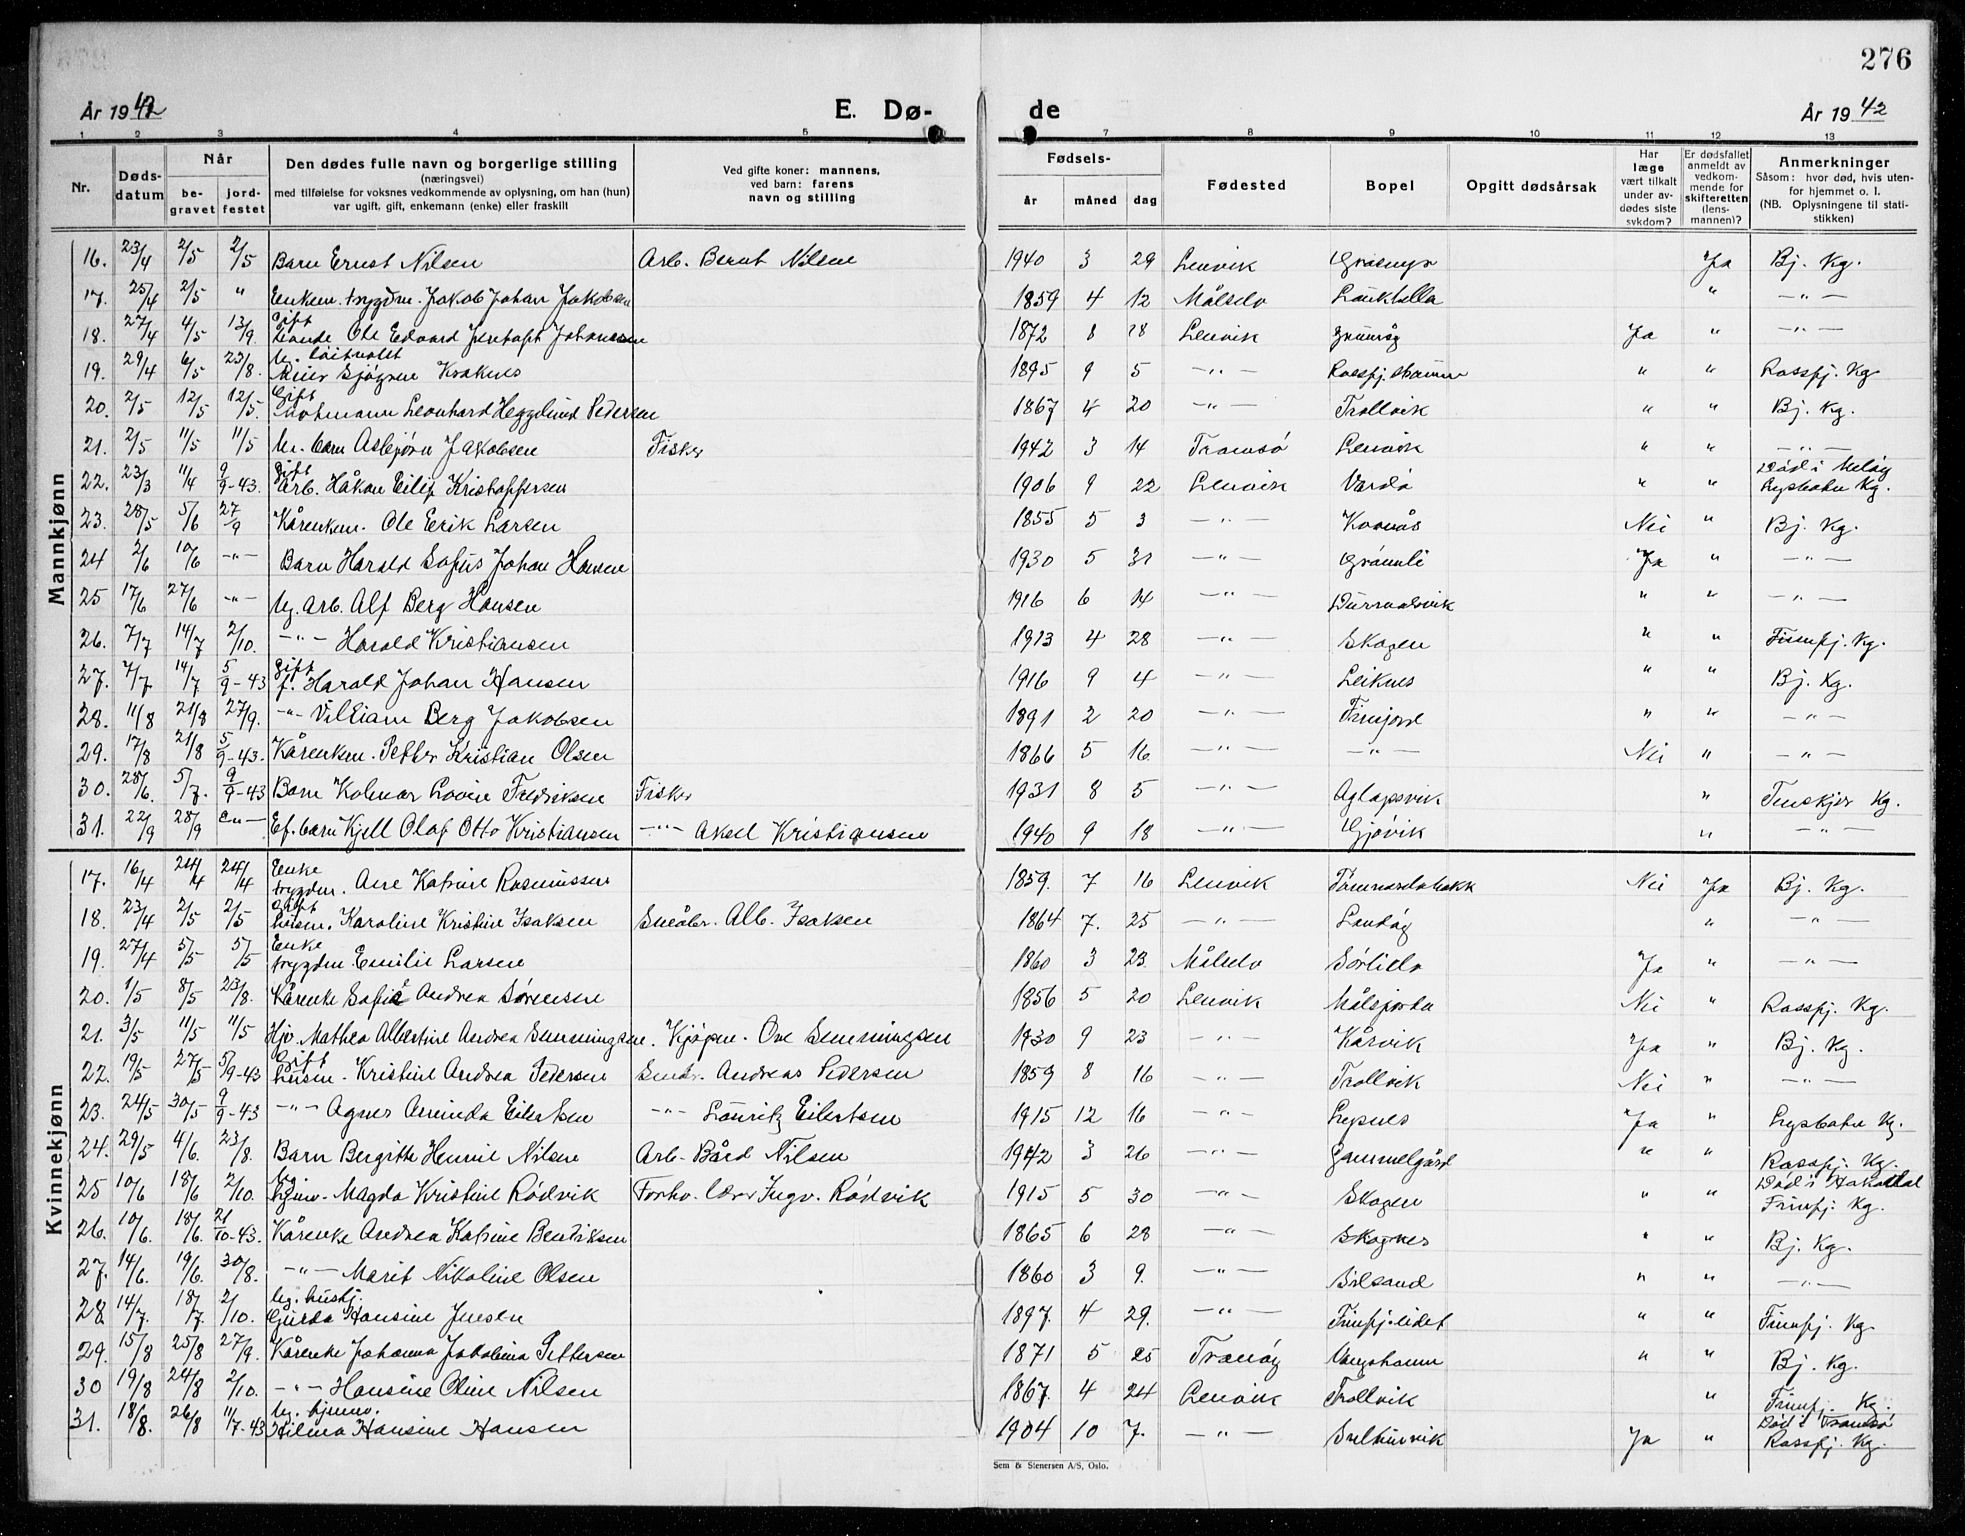 276
År 1942 E. Dø- de År 1942
1 2 3 4 5 7 8 9 10 11 12 13
Nr.
Døds-
datum
Når
be-
gravet
jord-
festet
Den dødes fulle navn og borgerlige stilling
(næringsvei)
med tilføielse for voksnes vedkommende av oplysning, om han (hun)
var ugift, gift, enkemann (enke) eller fraskilt
Ved gifte koner: mannens,
ved barn: farens
navn og stilling
Fødsels-
år måned dag
Fødested
Bopel
Opgitt dødsårsak
Har
læge
vært tilkalt
under av-
dødes siste
sykdom?
Er dødsfallet
anmeldt av
vedkom-
mende for
skifteretten
(lens-
mannen)?
Anmerkninger
Såsom: hvor død, hvis uten-
for hjemmet o. l.
(NB. Oplysningene til stati-
stikken)
Mannkjønn
16. 23/4 2/5 2/5 Barn Ernst Nilsen Arb. Bernt Nilsen 1940 3 29 Lenvik Ja Bj. Kg.
17. 25/4 2/5 " Enkem. trygdm. Jakob Johan Jakobsen 1859 4 12 Målselv Laukhella " -"-
18. 27/4 4/5 13/9. Gift Ole Edvard Johansen 1872 8 28 Lenvik Ja " -"-
19. 29/4 6/5 23/8. Kraknes 1895 9 5 -"- " " Rossfj. Kg
20. 2/5 12/5 12/5. Gift Leonhard Hegglund Pedersen 1867 4 20 -"- Trollvik " " Bj. Kg.
21. 2/5 11/5 11/5 barn Asbjørn Jakobsen Fisker 1942 3 14 Tromsø Lenvik " " -"-
22. 23/3 11/4 9/9-43. Gift Arb. Håkon Eilif Kristoffersen 1906 9 22 Lenvik Vardø " " Død i Meløy Lysbotn Kg.
23. 28/5 5/6 27/9 Kårenkem. Ole Eerik Larsen 1855 5 3 -"- Nei " Bj. Kg.
24 2/6 10/6 -"- Barn Harald Sofus Johan Hansen 1930 5 31 -"- Grønnli Ja " -"-
25 17/6 27/6 -"- Ug. Arb. Alf Berg Hansen 1916 6 14 -"- Durmålsvik " " -"-
26. 7/7 14/7 2/10. -"- Harald Kristiansen 1913 4 28 -"- Skogen " " Finnfj. Kg.
27. 7/7. 14/7 5/9-43 Gift f. Harald Johan Hansen 1916 9 4 -"- Leiknes " " Bj. Kg.
28. 11/8 21/8 27/9. -"- Villiam Berg Jakobsen 1891 2 20 -"- " " -"-
29. 17/8 21/8 5/9-43. Kårenkem. Petter Kristian Olsen 1866 5 16 -"- -"- Nei " -"-
30. 28/6. 5/7. 9/9-43 Barn Kolmar Lovin Fredriksen Fisker 1931 8 5 -"- Aglapsvik " Tenskjer Kg.
31. 22/9 28/9 -"- Ef. barn Kjell Olaf Otto Kristiansen -"- Aksel Kristiansen 1940 9 18 -"- Gjøvik " -"-
Kvinnekjønn
17. 16/4 24/4 24/4 Enke trygdm. Ane Katrine Rasmussen 1859. 7 16 Lenvik Nei Ja Bj. Kg.
18. 23/4 2/5 2/5 Gift husm. Karoline Kristine Isaksen Småbr. Alb. Isaksen 1864 7. 25 -"- " -"-
19. 27/4 5/5 5/5 Enke trygdm Emilie Larsen 1860 3 23 Målselv Sørlida Ja " -"-
20. 1/5 8/5 23/8. Kårenke Sofie Andrea Sørensen 1856 5 20 Lenvik Målsjorda Nei " Rossfj. Kg.
21. 3/5 11/5 11/5 Hjv. Mathea Albertine Andrea Semmingsen. Kjøpm. Ove Semmingsen 1930 9 23 -"- Kårvik Ja " Bj. Kg.
22. 19/5 27/5 5/9-43 Gift husm. Kristine Andrea Pedersen Småbr. Andreas Pedersen 1859 8 16 -"- Trollvik Nei " -"-
23. 24/5 30/5 9/9-43 -"- Agnes Arvinda Eilertsen -"- Lauritz Eilertsen 1915 12 16 -"- Lysnes Ja " Lysbotn Kg.
24. 29/5 4/6. 23/8. Barn Bergitte Henrie Nilsen Arb. Bård Nilsen 1942 3 26 -"- Gammelgård " " Rossfj. Kg.
25 10/6 18/6 2/10. Ug hjemv. Magda Kristine Rødvik Forhv. lærer Ingv. Rødvik 1915 5 30 -"- Skogen " " Død i Finnfj. Kg.
26. 10/6. 18/6. 21/10-43. Kårenke Andrea Katrine Bendiksen 1865 6 28 -"- Skognes " " Bj. Kg.
27. 14/6. 19/6. 30/8. -"- Marit Nikoline Olsen 1860 3 9. -"- Gibsand " " -"-
28. 14/7. 18/7. 2/10. Ug. hushj. Gurda Hansine Jensen 1897. 4 29. -"- Finnfj. eidet " " Finnfj. Kg
29. 15/8 25/8 27/9. Kårenke Johanna Jakobina Pettersen 1871 5 25 Tranøy Vangshamn " " Bj. Kg.
30 19/8 24/8 2/10. -"- Hansine Oline Nilsen 1867. 4 24 Lenvik Trollvik " Finnfj. Kg.
31. 18/8. 26/8 11/7-43 Ug. hjemv. Hilma Hansine Hansen 1904 10 7. -"- Ja " Død i Tromsø Rossfj. Kg.
Sem & Stenersen A/S, Oslo.